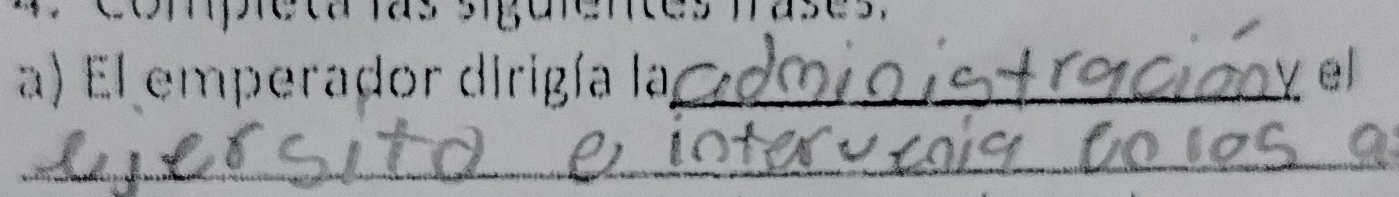 4. Completa las siguientes frases.
a) El emperador dirigía la administración y el
ejersito e intervenia en los a